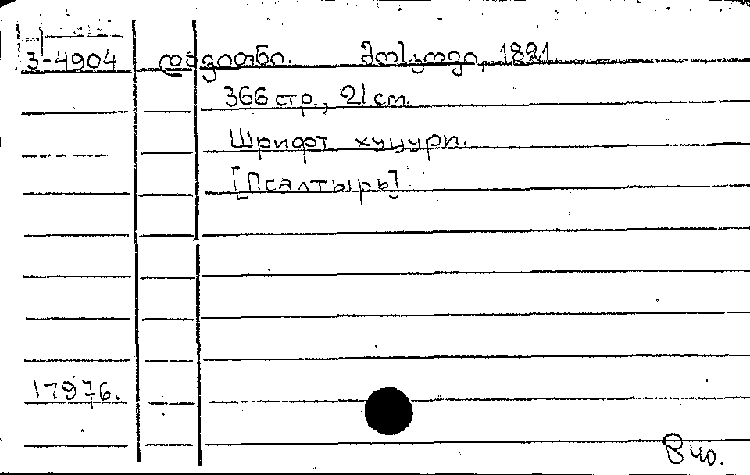 3-4904 დავითნი. მოსკოვი, 1821
366 стр., 21 см.
Шрифт хуцури.
[Псалтырь].
17976.